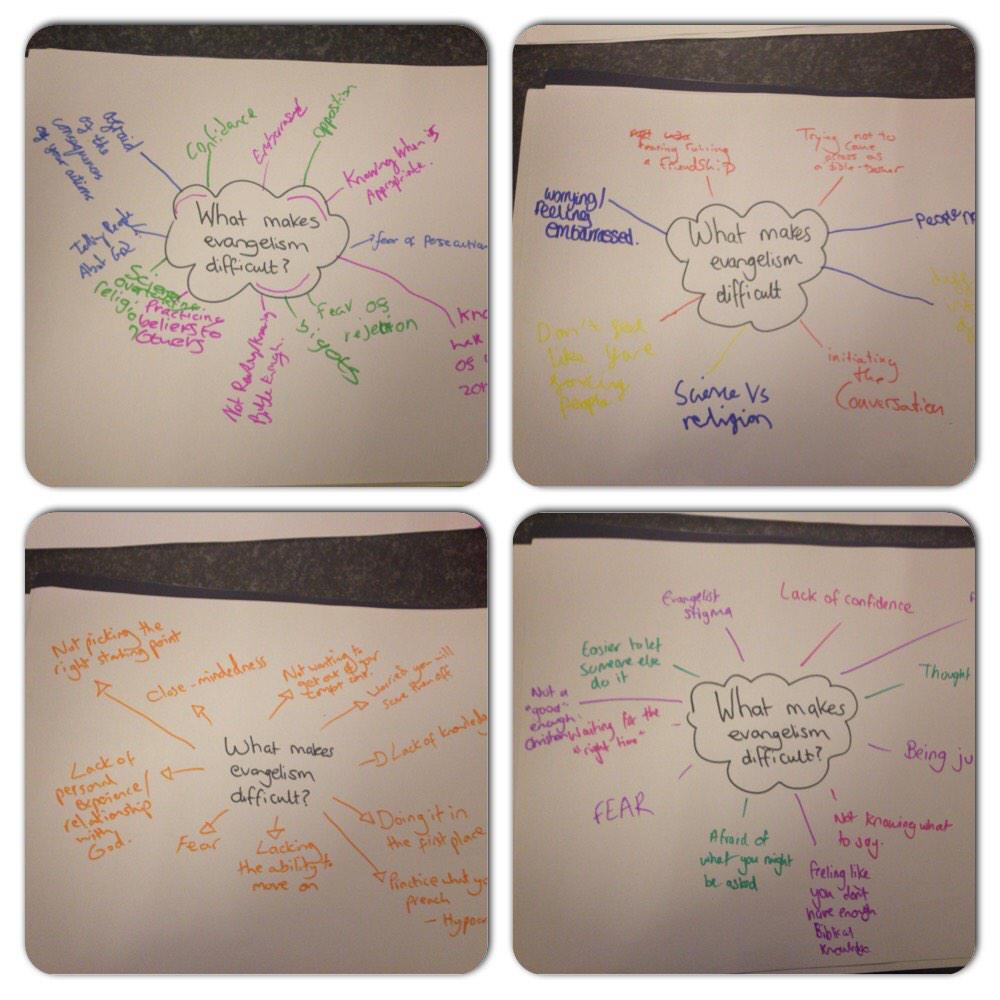 What makes
evangelism
difficult?
afraid
of the
consequences
of your actions
Confidance
Embarrased
opposition
Knowing when is
Appropriate.
fear of
About God
Science
religion
?
Practicing
beliers to
others
Not
Bible Enough.
bigots
fear of
rejection
What makes
evangelism
difficult
fearing
a friendship
Trying not to
come
across as
a bible-basher
worrying/
feeling
embarrassed.
Don't feel
like you're
forcing
people
Science Vs
religion
initiating
the
Conversation
What makes
evangelism
difficult?
Not picking the
right starting point
Close-mindedness
Not wanting to
get out of your
comfort zone.
Worried you will
scare them off
Lack of
Doing it in
the first place
Practice what
preach
Lacking
the ability to
move on
Fear
Lack of
personal
experience/
relationship
with
God.
What makes
evangelism
difficult?
Evangelist
stigma
Lack of confidence
Easier to let
someone else
do it
Thought
Not a
"good"
enough
Christian
Waiting for the
"right time"
Being
FEAR
Afraid of
what you might
be asked
Not knowing what
to say.
Feeling like
you don't
have enough
Biblical
Knowledge